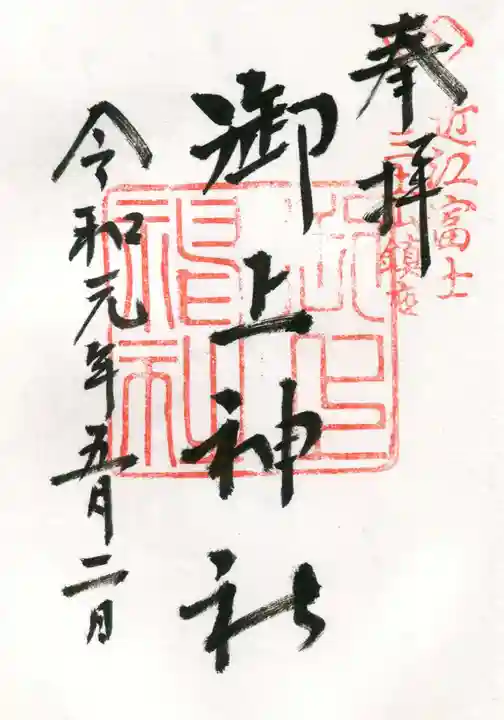 奉拝
近江富士
三上山鎮座
御上神社
令和元年五月二日